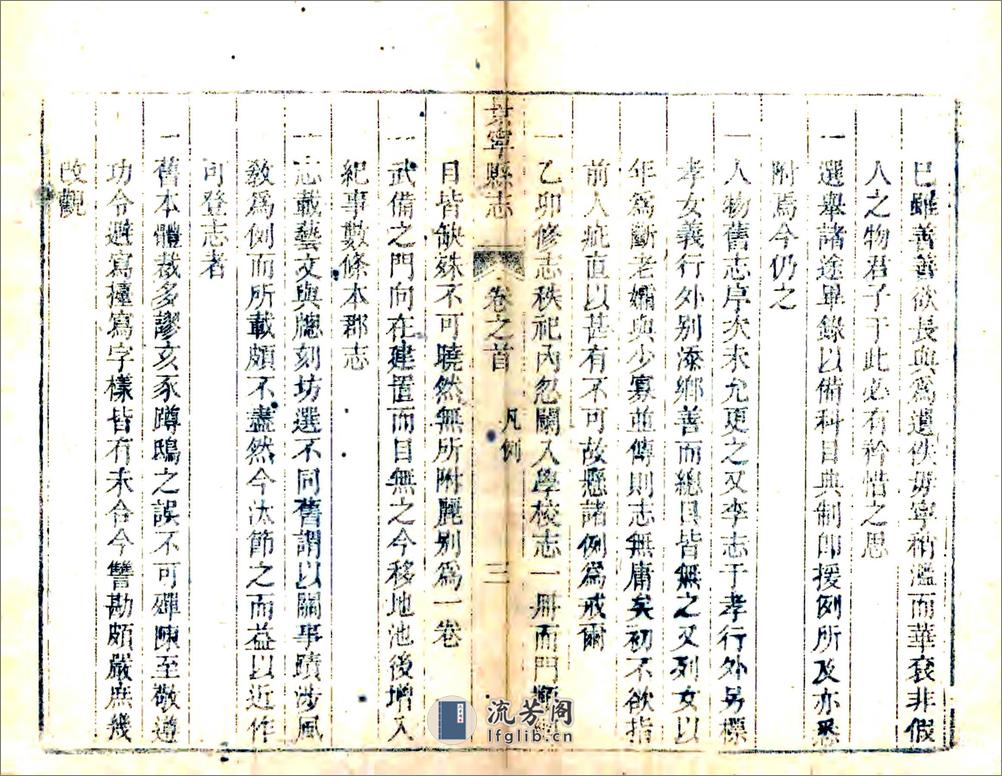 已雖善善欲長與爲遺佚毋寧稍濫而華袞非假
人之物君子于此必有矜惜之思
一選舉諸途畢錄以備科目典制即援例所及亦悉
附焉今仍之
一人物舊志序次未允更之又李志于孝行外另標
孝女義行外别添鄉善而總目皆無之又列女以
年爲斷老孀與少寡並傳則志無庸矣初不欲指
前人疵直以甚有不可故懸諸例爲戒爾
一乙卯修志秩祀內忽闌入學校志一冊而門類
目皆缺殊不可曉然無所附麗别爲一卷
景寧縣志
卷之首
凡例
三
一武備之門向在建置而目無之今移地池後增入
紀事數條本郡志
一志載藝文與牕刻坊選不同舊謂以關事蹟涉風
敎爲例而所載頗不盡然今汰節之而益以近作
可登志者
一舊本體裁多謬亥豕蹲鴟之誤不可殫陳至敬遵
功令避寫擡寫字樣皆有未合今讐勘頗嚴庶幾
改觀
流芳阁
lfglib.cn